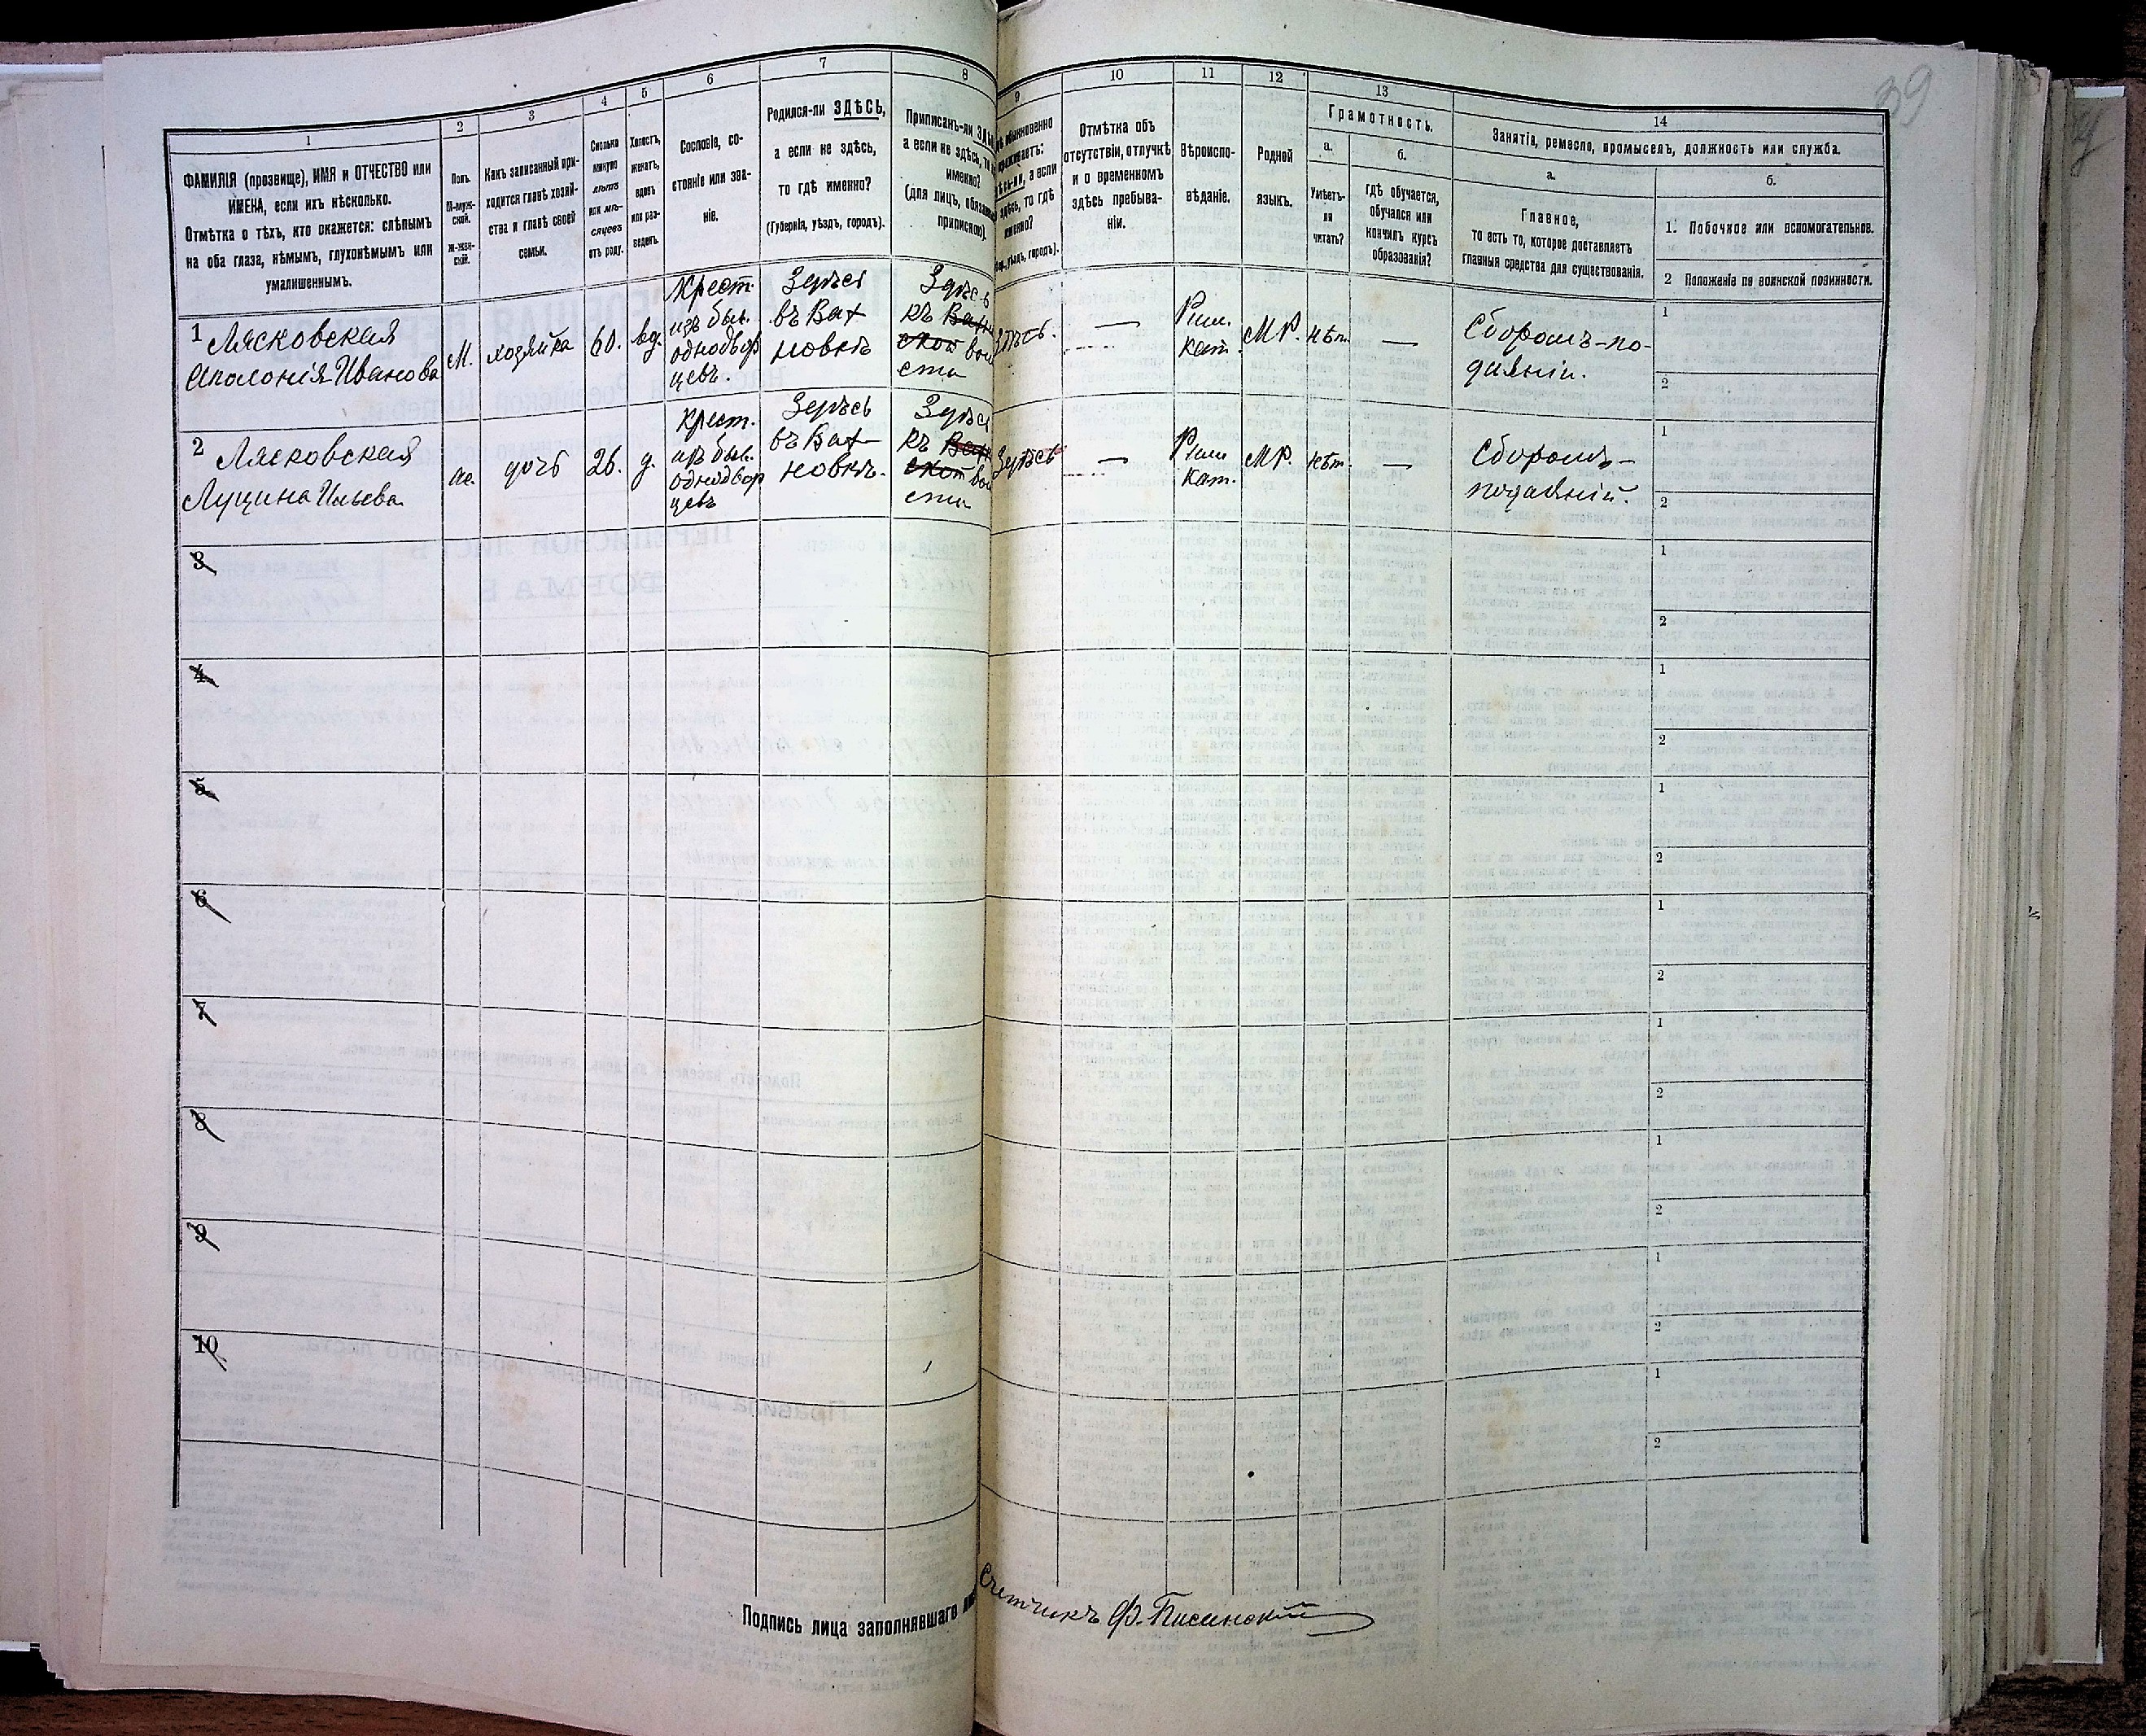 39
1
2
3
4
5
6
7
8
9
10
11
12
13
14
ФАМИЛІЯ (прозвище), ИМЯ и ОТЧЕСТВО или
ИМЕНА, если ихъ нѣсколько.
Отмѣтка о тѣхъ, кто окажется: слѣпымъ
на оба глаза, нѣмымъ, глухонѣмымъ или
умалишеннымъ.
Полъ.
М-муж-
ской.
ж-жен-
скій.
Какъ записанный при-
ходится главѣ хозяй-
ства и главѣ своей
семьи.
Сколько
минуло
лѣтъ
или мѣ-
сяцевъ
отъ роду.
Холостъ,
женатъ,
вдовъ
или раз-
веденъ.
Сословіе, со-
стояніе или зва-
ніе.
Родился-ли ЗДѢСЬ,
а если не здѣсь,
то гдѣ именно?
(Губернія, уѣздъ, городъ).
Приписанъ-ли
а если не здѣсь, то
именно?
(для лицъ,
припискою).
обыкновенно
проживаетъ:
а если
здѣсь, то гдѣ
именно?
уѣздъ, городъ).
Отмѣтка объ
отсутствіи, отлучкѣ
и о временномъ
здѣсь пребыва-
ніи.
Вѣроиспо-
вѣданіе.
Родной
языкъ.
Грамотность.
а.
Умѣетъ-
ли
читать?
б.
гдѣ обучается,
обучался или
кончилъ курсъ
образованія?
Занятія, ремесло, промыселъ, должность или служба.
а.
Главное,
то есть то, которое доставляетъ
главныя средства для существованія.
б.
1. Побочное или вспомогательное.
2 Положеніе по воинской повинности.
1 Лясковская
Аполонія Иванова
М.
хозяйка
60.
вд.
Крест.
изъ быв.
однодвор
цевъ.
Здѣсь
въ Вах
новкѣ
Здѣсь
къ
сти
Здѣсь.
—
Рим.
кат.
МР.
нѣт.
—
Сборомъ-по-
даяній.
1
2
2 Лясковская
Луцина Ильева
ж.
дочь
26.
д.
Крест.
изъ быв.
однодвор
цевъ
Здѣсь
въ Вах
новкѣ.
Здѣсь
къ
сти
Здѣсь
—
Рим
Кат.
МР.
нѣт.
—
Сборомъ-
подаяній.
1
2
3
1
2
4
1
2
5
1
2
6
1
2
7
1
2
8
1
2
9
1
2
10
1
2
Подпись лица заполнявшаго
Счетчикъ Ф.